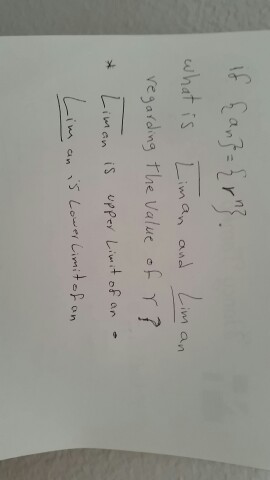 If {an} = {rⁿ}.
what is L̅i̅m̅ an and L̲i̲m̲ an
regarding the value of r?
* L̅i̅m̅ an is upper limit of an.
L̲i̲m̲ an is Lower Limit of an